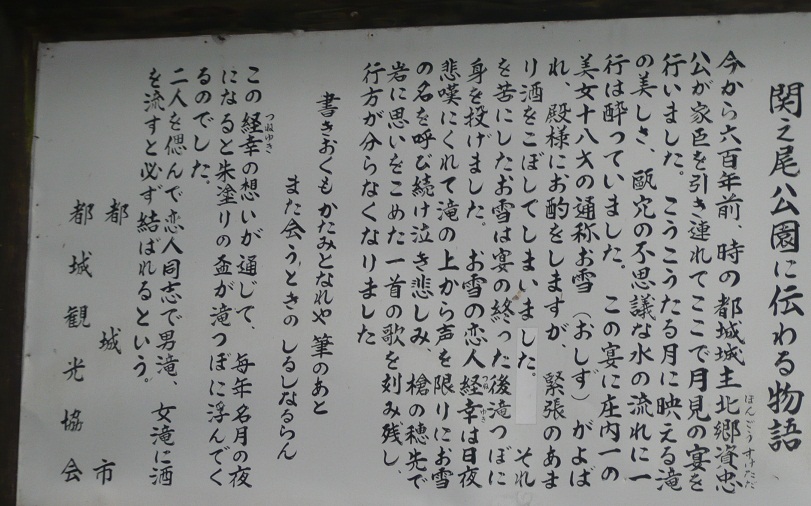 関之尾公園に伝わる物語
今から六百年前、時の都城城主北郷資忠
ほんごうすけただ
公が家臣を引き連れてここで月見の宴を
行いました。こうこうたる月に映える滝
の美しさ、甌穴の不思議な水の流れに一
行は酔っていました。この宴に庄内一の
美女十八才の通称お雪(おしず)がよば
れ、殿様にお酌をしますが、緊張のあま
り酒をこぼしてしまいました。それ
を苦にしたお雪は宴の終った後滝つぼに
身を投げました。お雪の恋人経幸は日夜
つねゆき
悲嘆にくれて滝の上から声を限りにお雪
の名を呼び続け泣き悲しみ、槍の穂先で
岩に思いをこめた一首の歌を刻み残し、
行方が分らなくなりました
書きおくもかたみとなれや筆のあと
また会うときのしるしなるらん
この経幸の想いが通じて、毎年名月の夜
つねゆき
になると朱塗りの盃が滝つぼに浮んでく
るのでした。
二人を偲んで恋人同志で男滝、女滝に酒
を流すと必ず結ばれるという。
都城市
都城観光協会